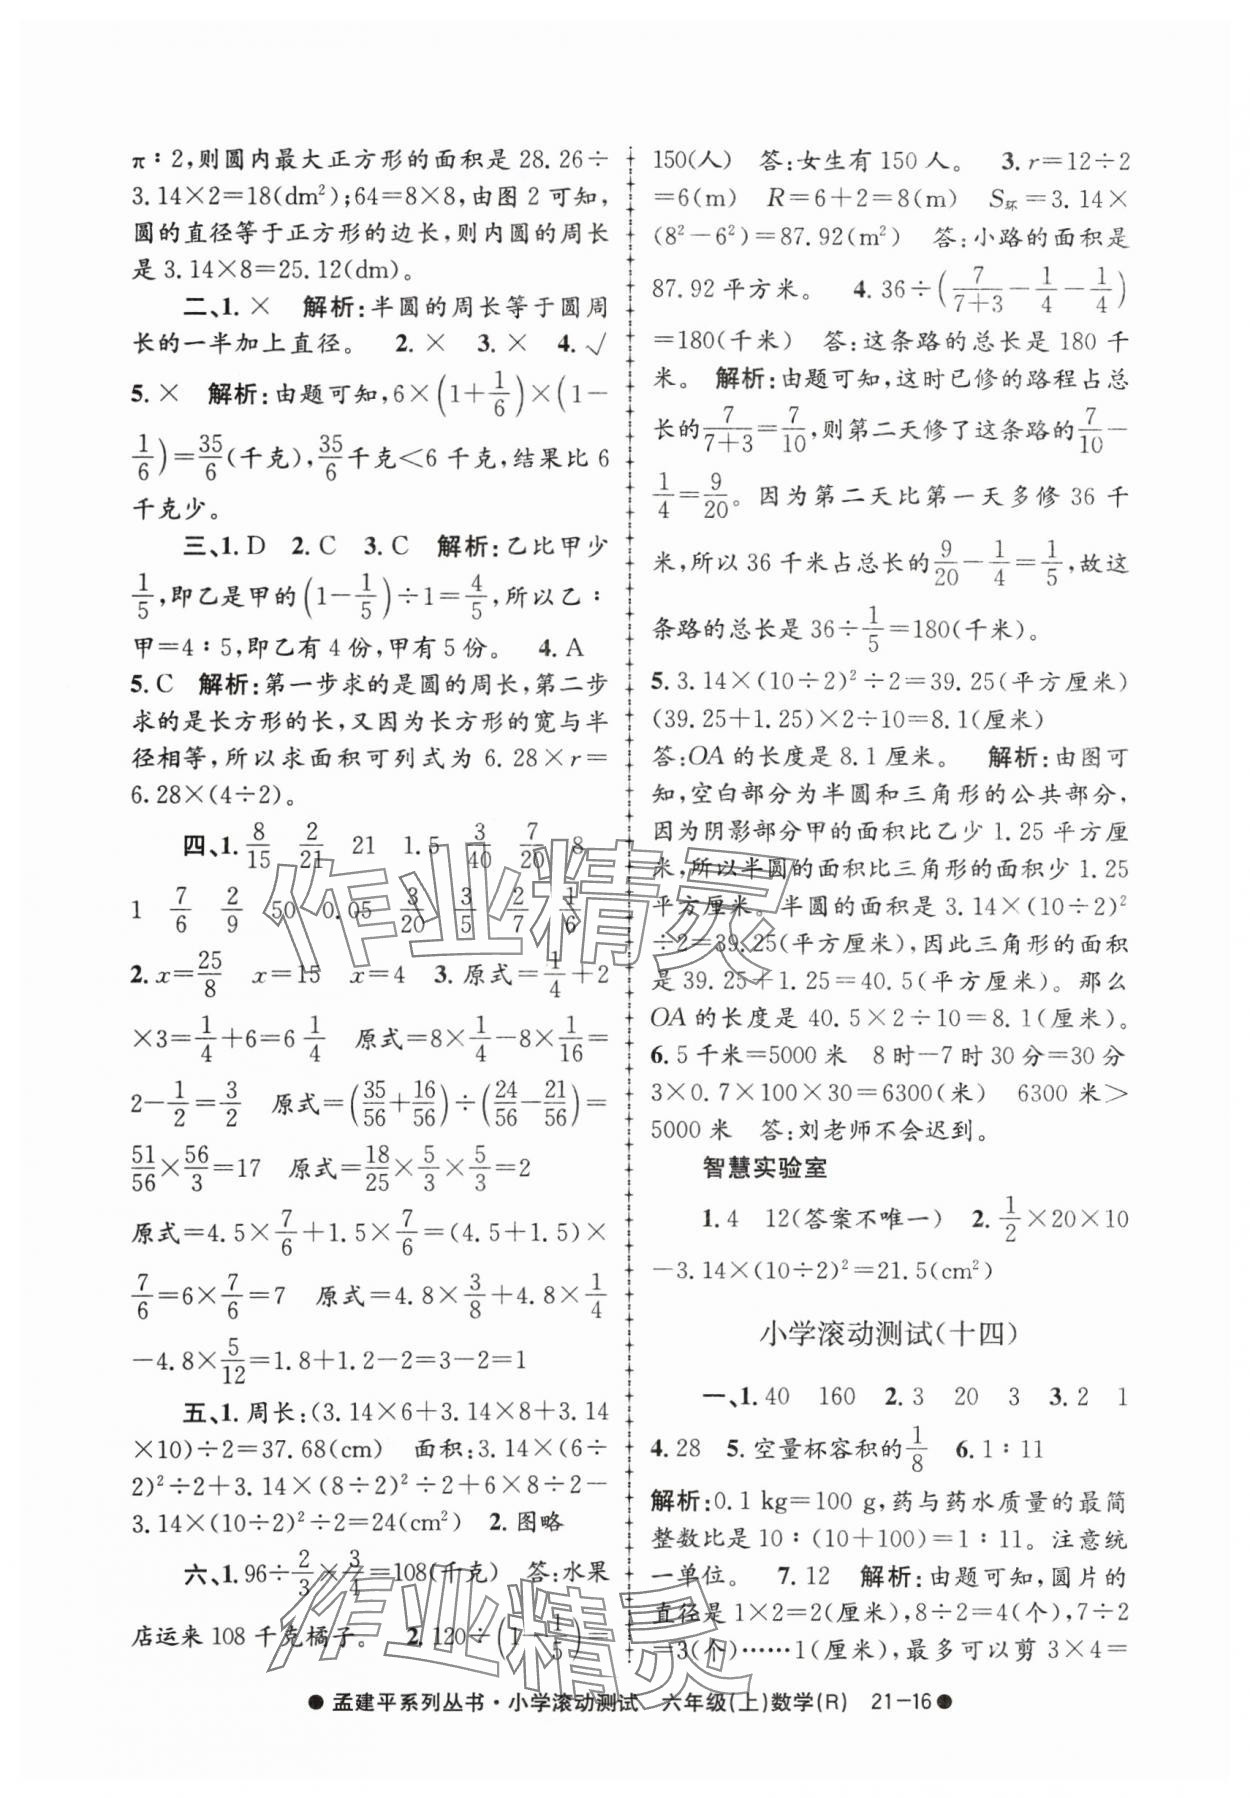 π∶2,则圆内最大正方形的面积是28.26÷
3.14×2=18(dm²);64=8×8,由图2可知,
圆的直径等于正方形的边长,则内圆的周长
是3.14×8=25.12(dm)。
二、1. × 解析:半圆的周长等于圆周
长的一半加上直径。 2. × 3. × 4. √
5. × 解析:由题可知,6×(1+1/6)×(1−
1/6)=35/6(千克),35/6千克<6千克,结果比6
千克少。
三、1. D 2. C 3. C 解析:乙比甲少
1/5,即乙是甲的(1−1/5)÷1=4/5,所以乙∶
甲=4∶5,即乙有4份,甲有5份。 4. A
5. C 解析:第一步求的是圆的周长,第二步
求的是长方形的长,又因为长方形的宽与半
径相等,所以求面积可列式为6.28×r=
6.28×(4÷2)。
四、1. 8/15 2/21 21 1.5 3/40 7/20 8
1 7/6 2/9 50 0.05 3/20 3/5 2/7 1/6
2. x=25/8 x=15 x=4 3. 原式=1/4+2
×3=1/4+6=6 1/4 原式=8×1/4−8×1/16=
2−1/2=3/2 原式=(35/56+16/56)÷(24/56−21/56)=
51/56×56/3=17 原式=18/25×5/3×5/3=2
原式=4.5×7/6+1.5×7/6=(4.5+1.5)×
7/6=6×7/6=7 原式=4.8×3/8+4.8×1/4
−4.8×5/12=1.8+1.2−2=3−2=1
五、1. 周长:(3.14×6+3.14×8+3.14
×10)÷2=37.68(cm) 面积:3.14×(6÷
2)²÷2+3.14×(8÷2)²÷2+6×8÷2−
3.14×(10÷2)²÷2=24(cm²) 2. 图略
六、1. 96÷2/3×3/4=108(千克) 答:水果
店运来108千克橘子。 2. 120÷(1−1/5)=
150(人) 答:女生有150人。 3. r=12÷2
=6(m) R=6+2=8(m) S环=3.14×
(8²−6²)=87.92(m²) 答:小路的面积是
87.92平方米。 4. 36÷(7/(7+3)−1/4−1/4)
=180(千米) 答:这条路的总长是180千
米。 解析:由题可知,这时已修的路程占总
长的7/(7+3)=7/10,则第二天修了这条路的7/10−
1/4=9/20。因为第二天比第一天多修36千
米,所以36千米占总长的9/20−1/4=1/5,故这
条路的总长是36÷1/5=180(千米)。
5. 3.14×(10÷2)²÷2=39.25(平方厘米)
(39.25+1.25)×2÷10=8.1(厘米)
答:OA的长度是8.1厘米。 解析:由图可
知,空白部分为半圆和三角形的公共部分,
因为阴影部分甲的面积比乙少1.25平方厘
米,所以半圆的面积比三角形的面积少1.25
平方厘米。半圆的面积是3.14×(10÷2)²
÷2=39.25(平方厘米),因此三角形的面积
是39.25+1.25=40.5(平方厘米)。那么
OA的长度是40.5×2÷10=8.1(厘米)。
6. 5千米=5000米 8时−7时30分=30分
3×0.7×100×30=6300(米) 6300米>
5000米 答:刘老师不会迟到。
智慧实验室
1. 4 12(答案不唯一) 2. 1/2×20×10
−3.14×(10÷2)²=21.5(cm²)
小学滚动测试(十四)
一、1. 40 160 2. 3 20 3 3. 2 1
4. 28 5. 空量杯容积的1/8 6. 1∶11
解析:0.1 kg=100 g,药与药水质量的最简
整数比是10∶(10+100)=1∶11。注意统
一单位。 7. 12 解析:由题可知,圆片的
直径是1×2=2(厘米),8÷2=4(个),7÷2
=3(个)……1(厘米),最多可以剪3×4=
●孟建平系列丛书·小学滚动测试 六年级(上)数学(R) 21−16●
作业精灵
作业精灵